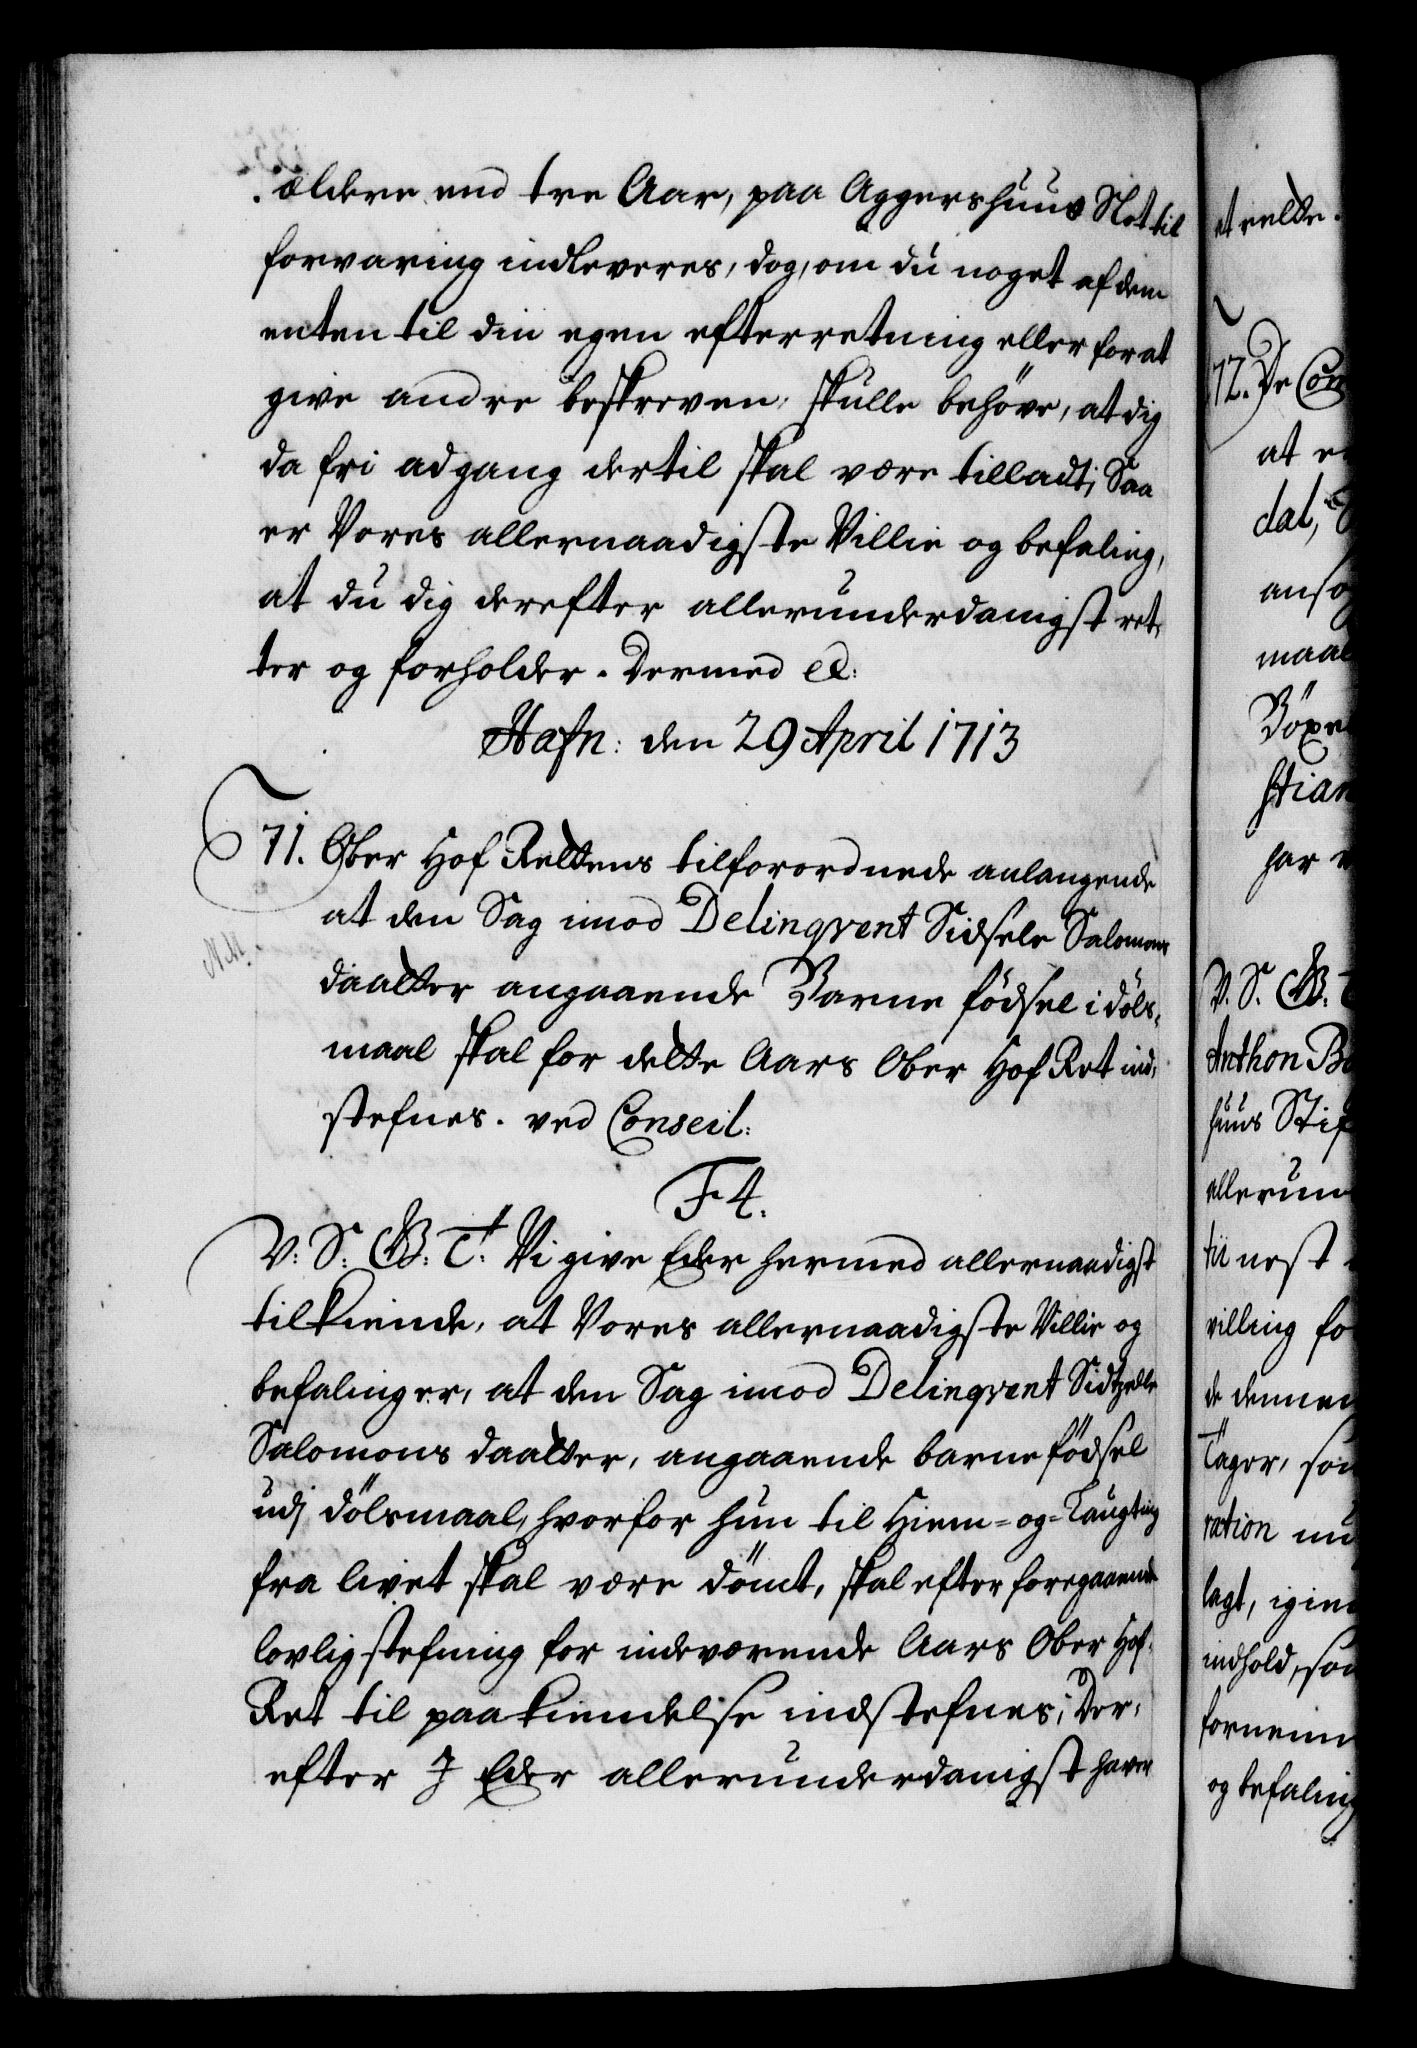 ældere end tre Aar, paa Aggershuus Slot til
forvaring indleveres, dog, om du noget af dem
enten til din egen efterretning eller for at
give andre beskreven, skulle behöve, at dig
da fri adgang dertil skal være tilladt; Saa
er Vores allernaadigste Villie og befaling,
at du dig derefter allerunderdanigst ret-
ter og forholder. Dermed etc:
Hafn: den 29 April 1713
71. Ober Hof Rettens tilforordnede anlangende
at den Sag imod Delinqvent Sidsele Salomons
daatter angaaende Barne födsel i döls-
maal skal for dette Aars Ober Hof Ret ind-
stefnes. ved Conseil:
F 4.
V: S: G: T: Vi give Eder hermed allernaadigst
tilkiende, at Vores allernaadigste Villie og
befaling er, at den Sag imod Delinqvent Sidtzelle
Salomons daatter, angaaende barne födsel
udj dölsmaal, hvorfor hun til Hiem-og-Laugting
fra livet skal være dömt, skal efter foregaaende
lovlig stefning for indeværende Aars Ober Hof-
Ret til paakiendelse indstefnes; Der-
efter I Eder allerunderdanigst haver
et rette.
72. De Com
at e
dal,
ansö
maal
Böxe
stian
har
V. S. G: T
Anthon B
huus Stif
allerun
til nest
villing fo
de dennem
Tager, som
ration nu
lagt, igien
indhold, som
fornemm
og befaling